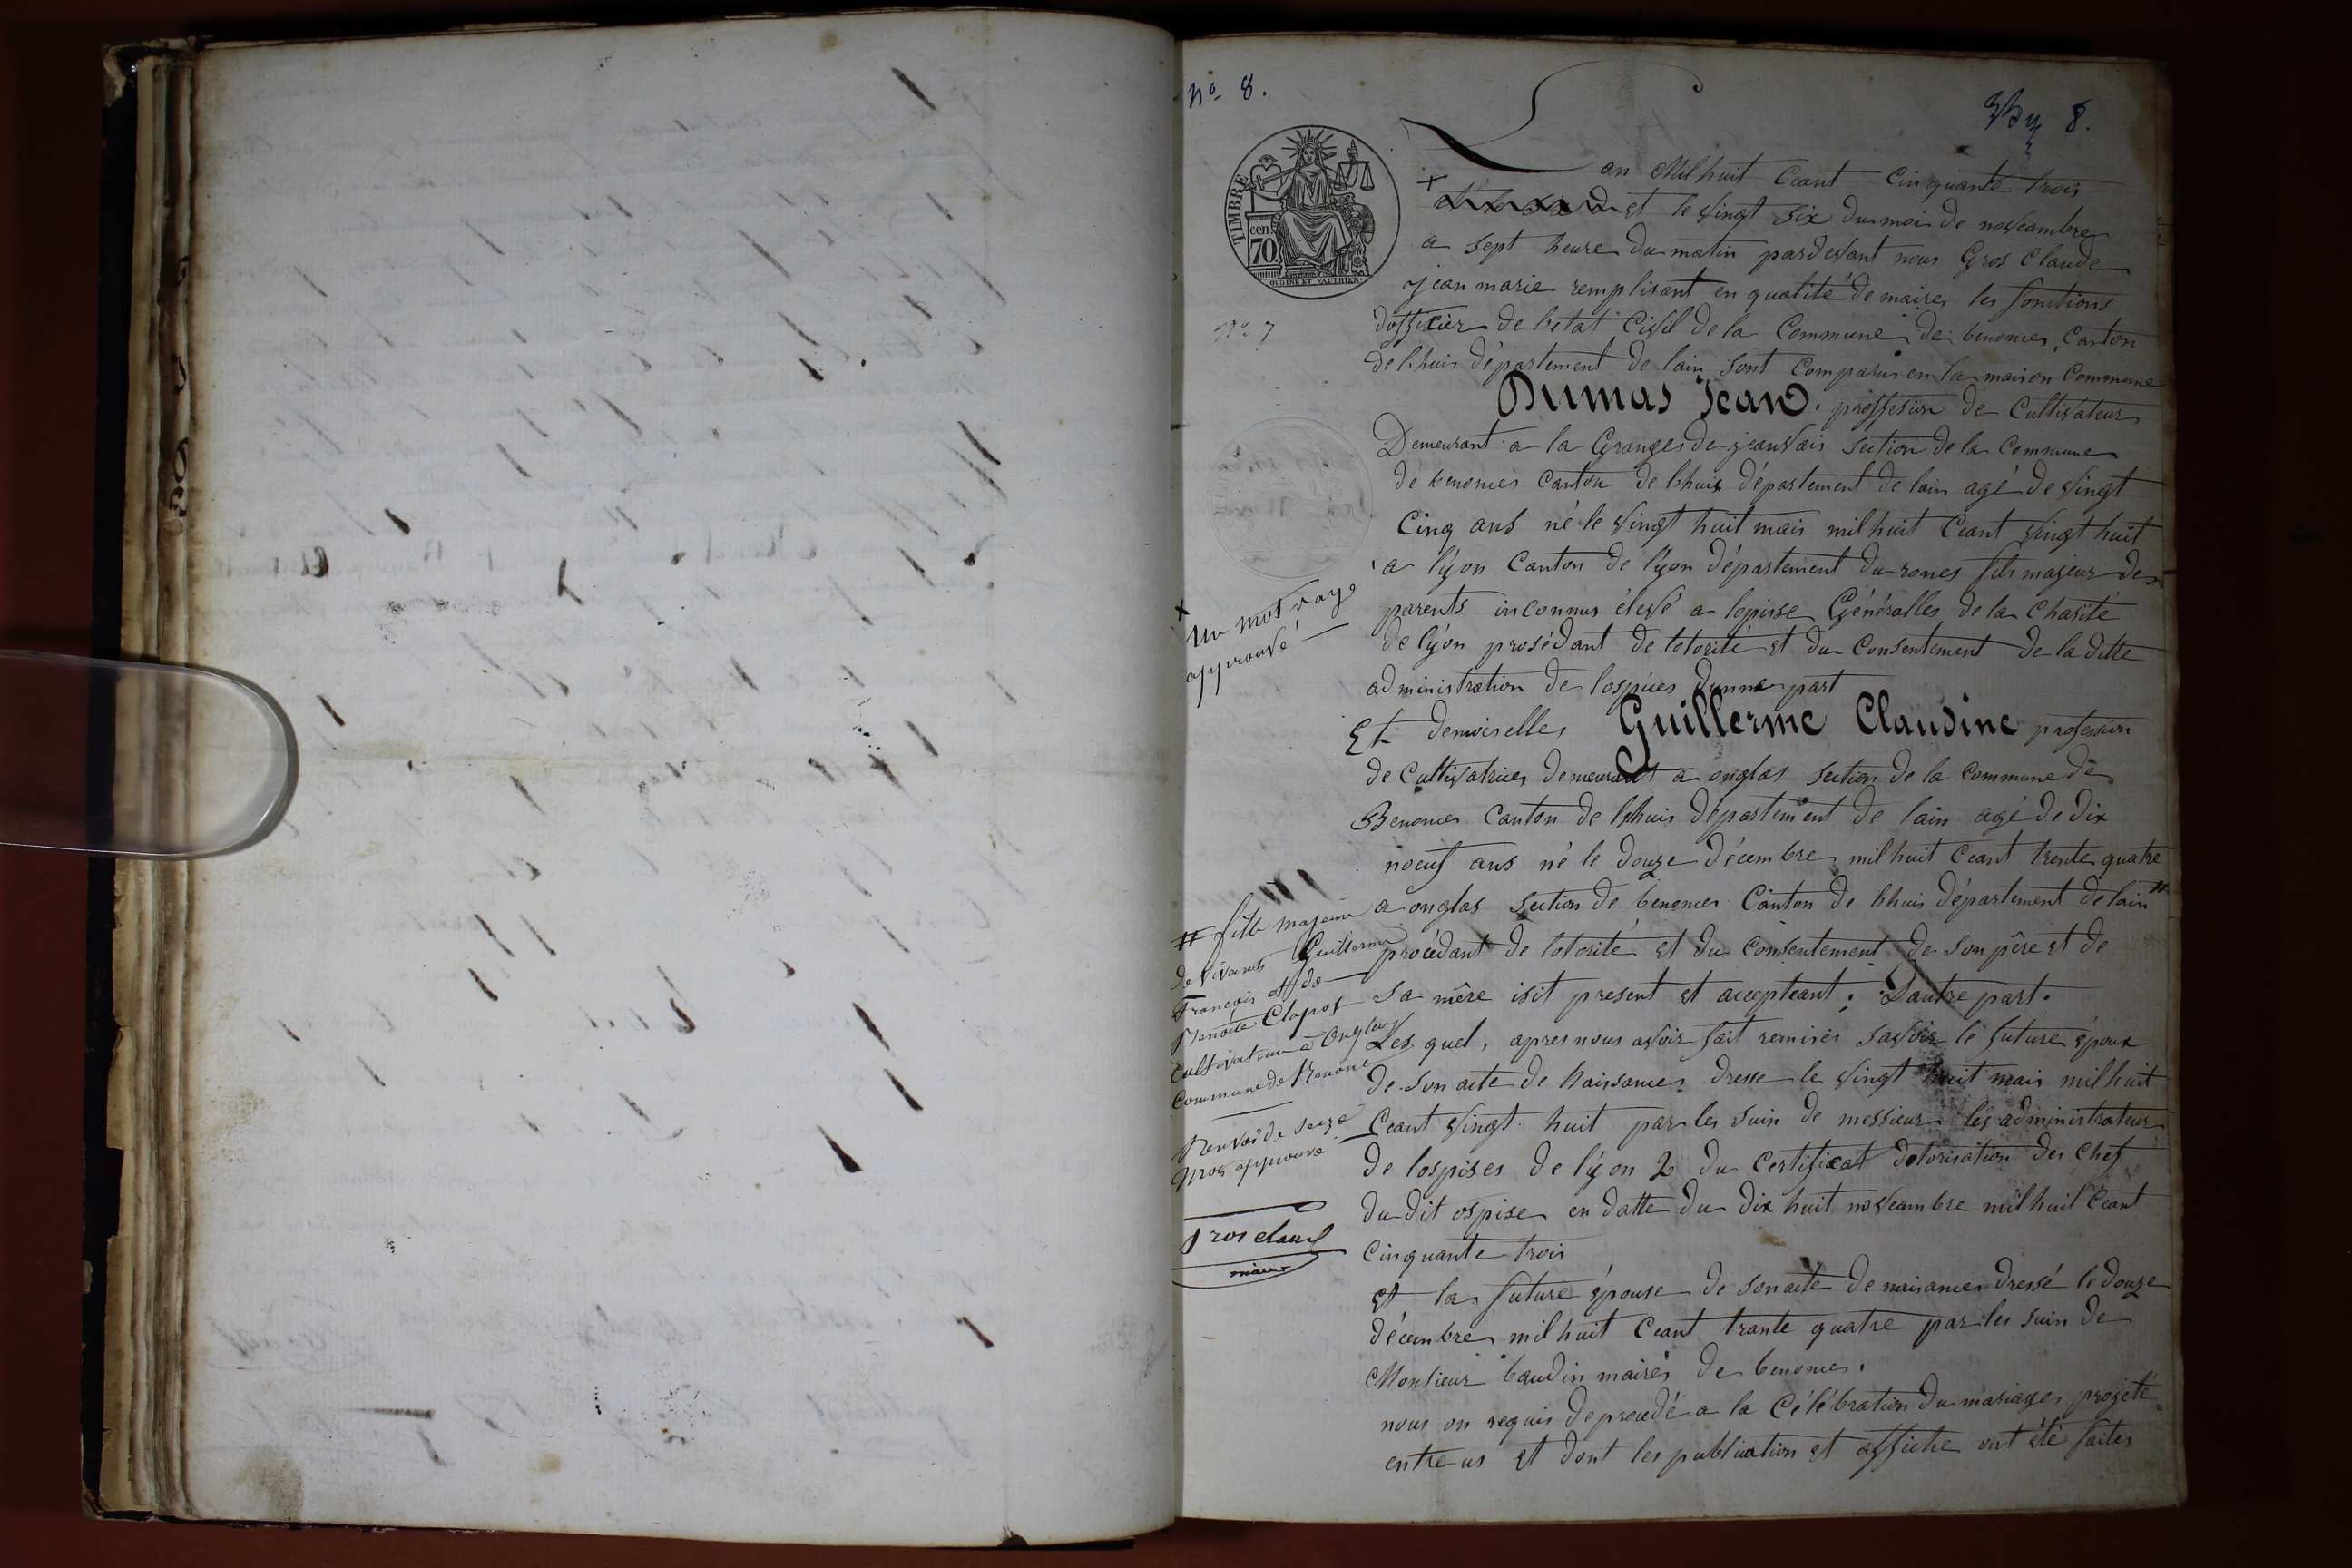 No 8.
8.
TIMBRE
cen.
70.
OUDINÉ ET VAUTHIER.
Lan Mil huit Ceant Cinquante trois
+ et le vingt six du mois de noveambre
a sept heure du matin pardevant nous Gros Claude
jean marie remplisant en qualité de maires les fonctions
dofficier de letat Civil de la Commune de benonces, Canton
de lhuis département de lain sont Comparus en la maison Commune
No 7
Dumas Jean. proffesion de Cultivateur
Demeurant a la Granges de jeanvais section de la Commune
de benonces Canton de lhuis département de lain agé de vingt
Cinq ans né le vingt huit mais mil huit Ceant vingt huit
a lyon Canton de lyon département du rones fils majeur de
parents inconnus élevé a lopisse Généralles de la Charité
de lyon prosédant de lotorité et du Consentement de la ditte
administration de lospices dunne part
x
Un mot rayé
approuvé
Et demoiselles Guillerme Claudine profession
de Cultivatrices demeurant a onglas section de la Commune de
Benonces Canton de lhuis département de lain agé de dix
noeuf ans né le douze décembre mil huit Ceant trente quatre
a onglas section de benonces Canton de lhuis département de lain #
procédant de lotorité et du Consentement de son père et de
sa mère isit present et accepteant. Dautre part.
# fille majeure
de vivants Guillerme
François et de
Benoite Clapot
Cultivateur à Onglas
Commune de Benonce
Renvoi de seize
mos approuvé
Gros claude
maire
Les quel, apres nous avoir fait remises savoir le future époux
de son acte de Naissances dresse le vingt huit mais mil huit
Ceant vingt huit par les suin de messieur les administrateur
de lospises de lyon 2 du Certificat dotorisation des Chef
du dit ospise en datte du dix huit noveambre mil huit Ceant
Cinquante trois
Et la future épouse de son acte de naisances dressé le douze
décembre mil huit Ceant trante quatre par les suin de
Monsieur baudin maires de benonces.
nous on requis de procedé a la Célébration du mariages projeté
entre us et dont les publication et affiche ont été faites